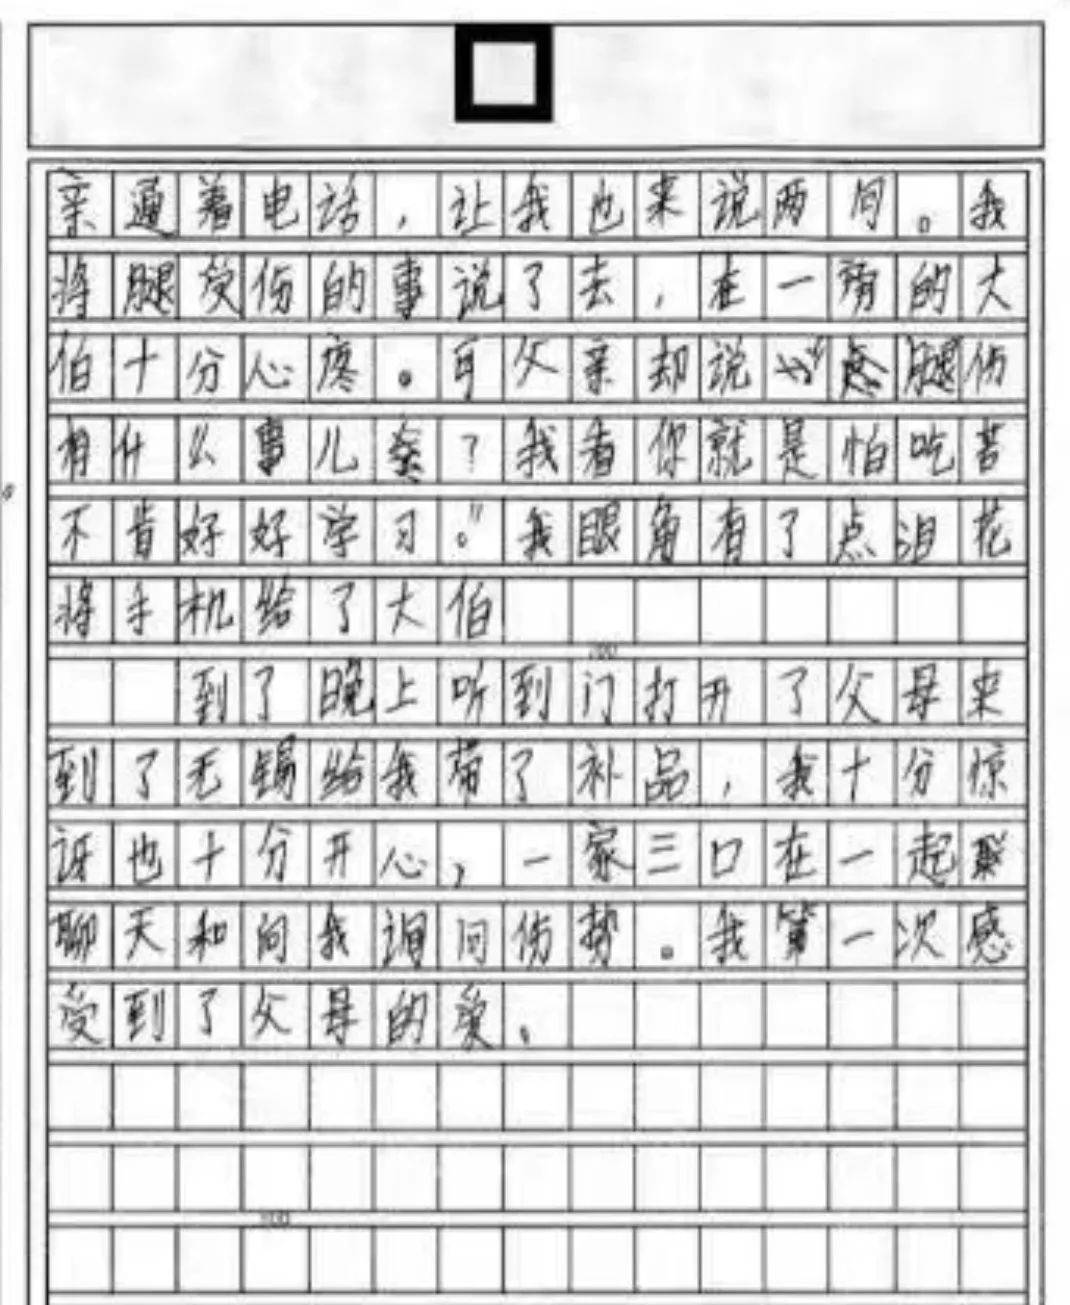 亲通着电话，让我也来说两句。我
将腿受伤的事说了去，在一旁的大
伯十分心疼。可父亲却说“点腿伤
有什么事儿？我看你就是怕吃苦
不肯好好学习。”我眼角有了点泪花
将手机给了大伯
到了晚上听到门打开了父母来
到了无锡给我带了补品，我十分惊
讶也十分开心，一家三口在一起聚
聊天和向我询问伤势。我第一次感
受到了父母的爱。